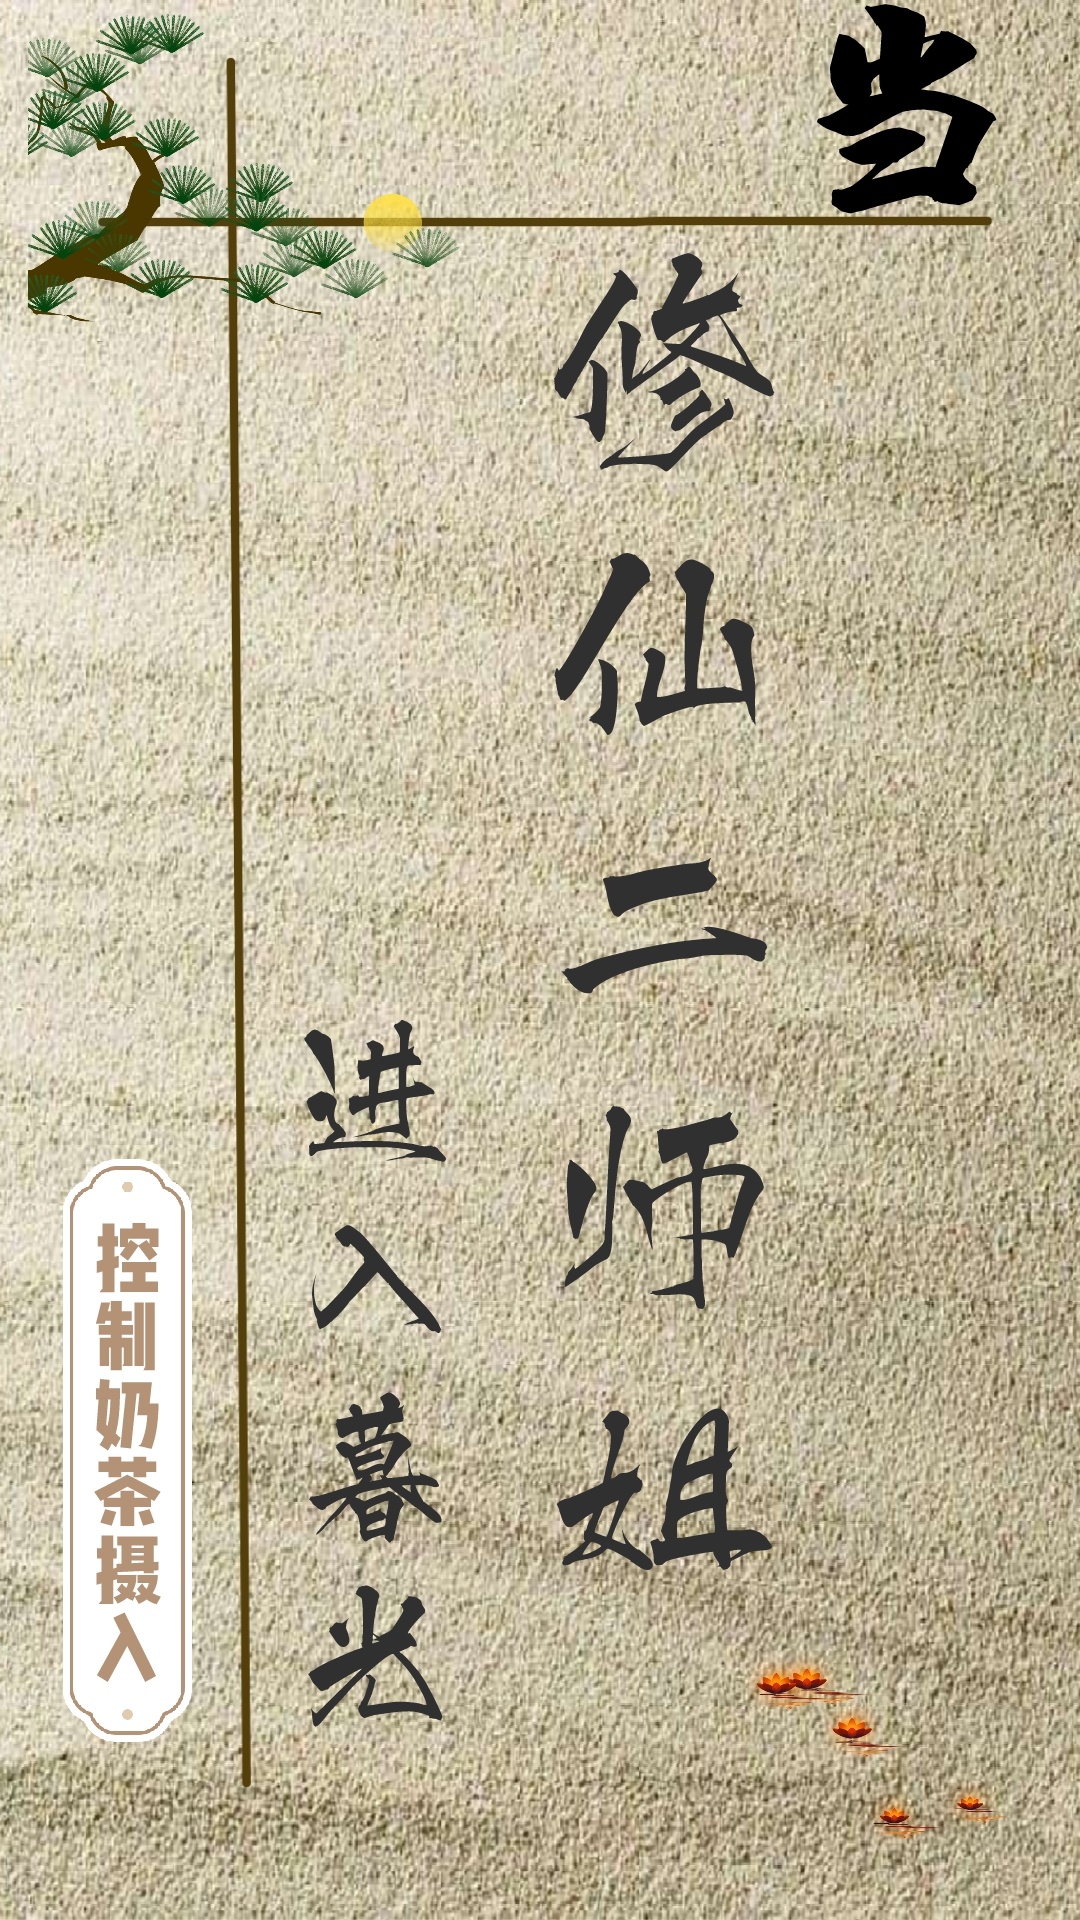 当
修仙二师姐
进入暮光
控制奶茶摄入